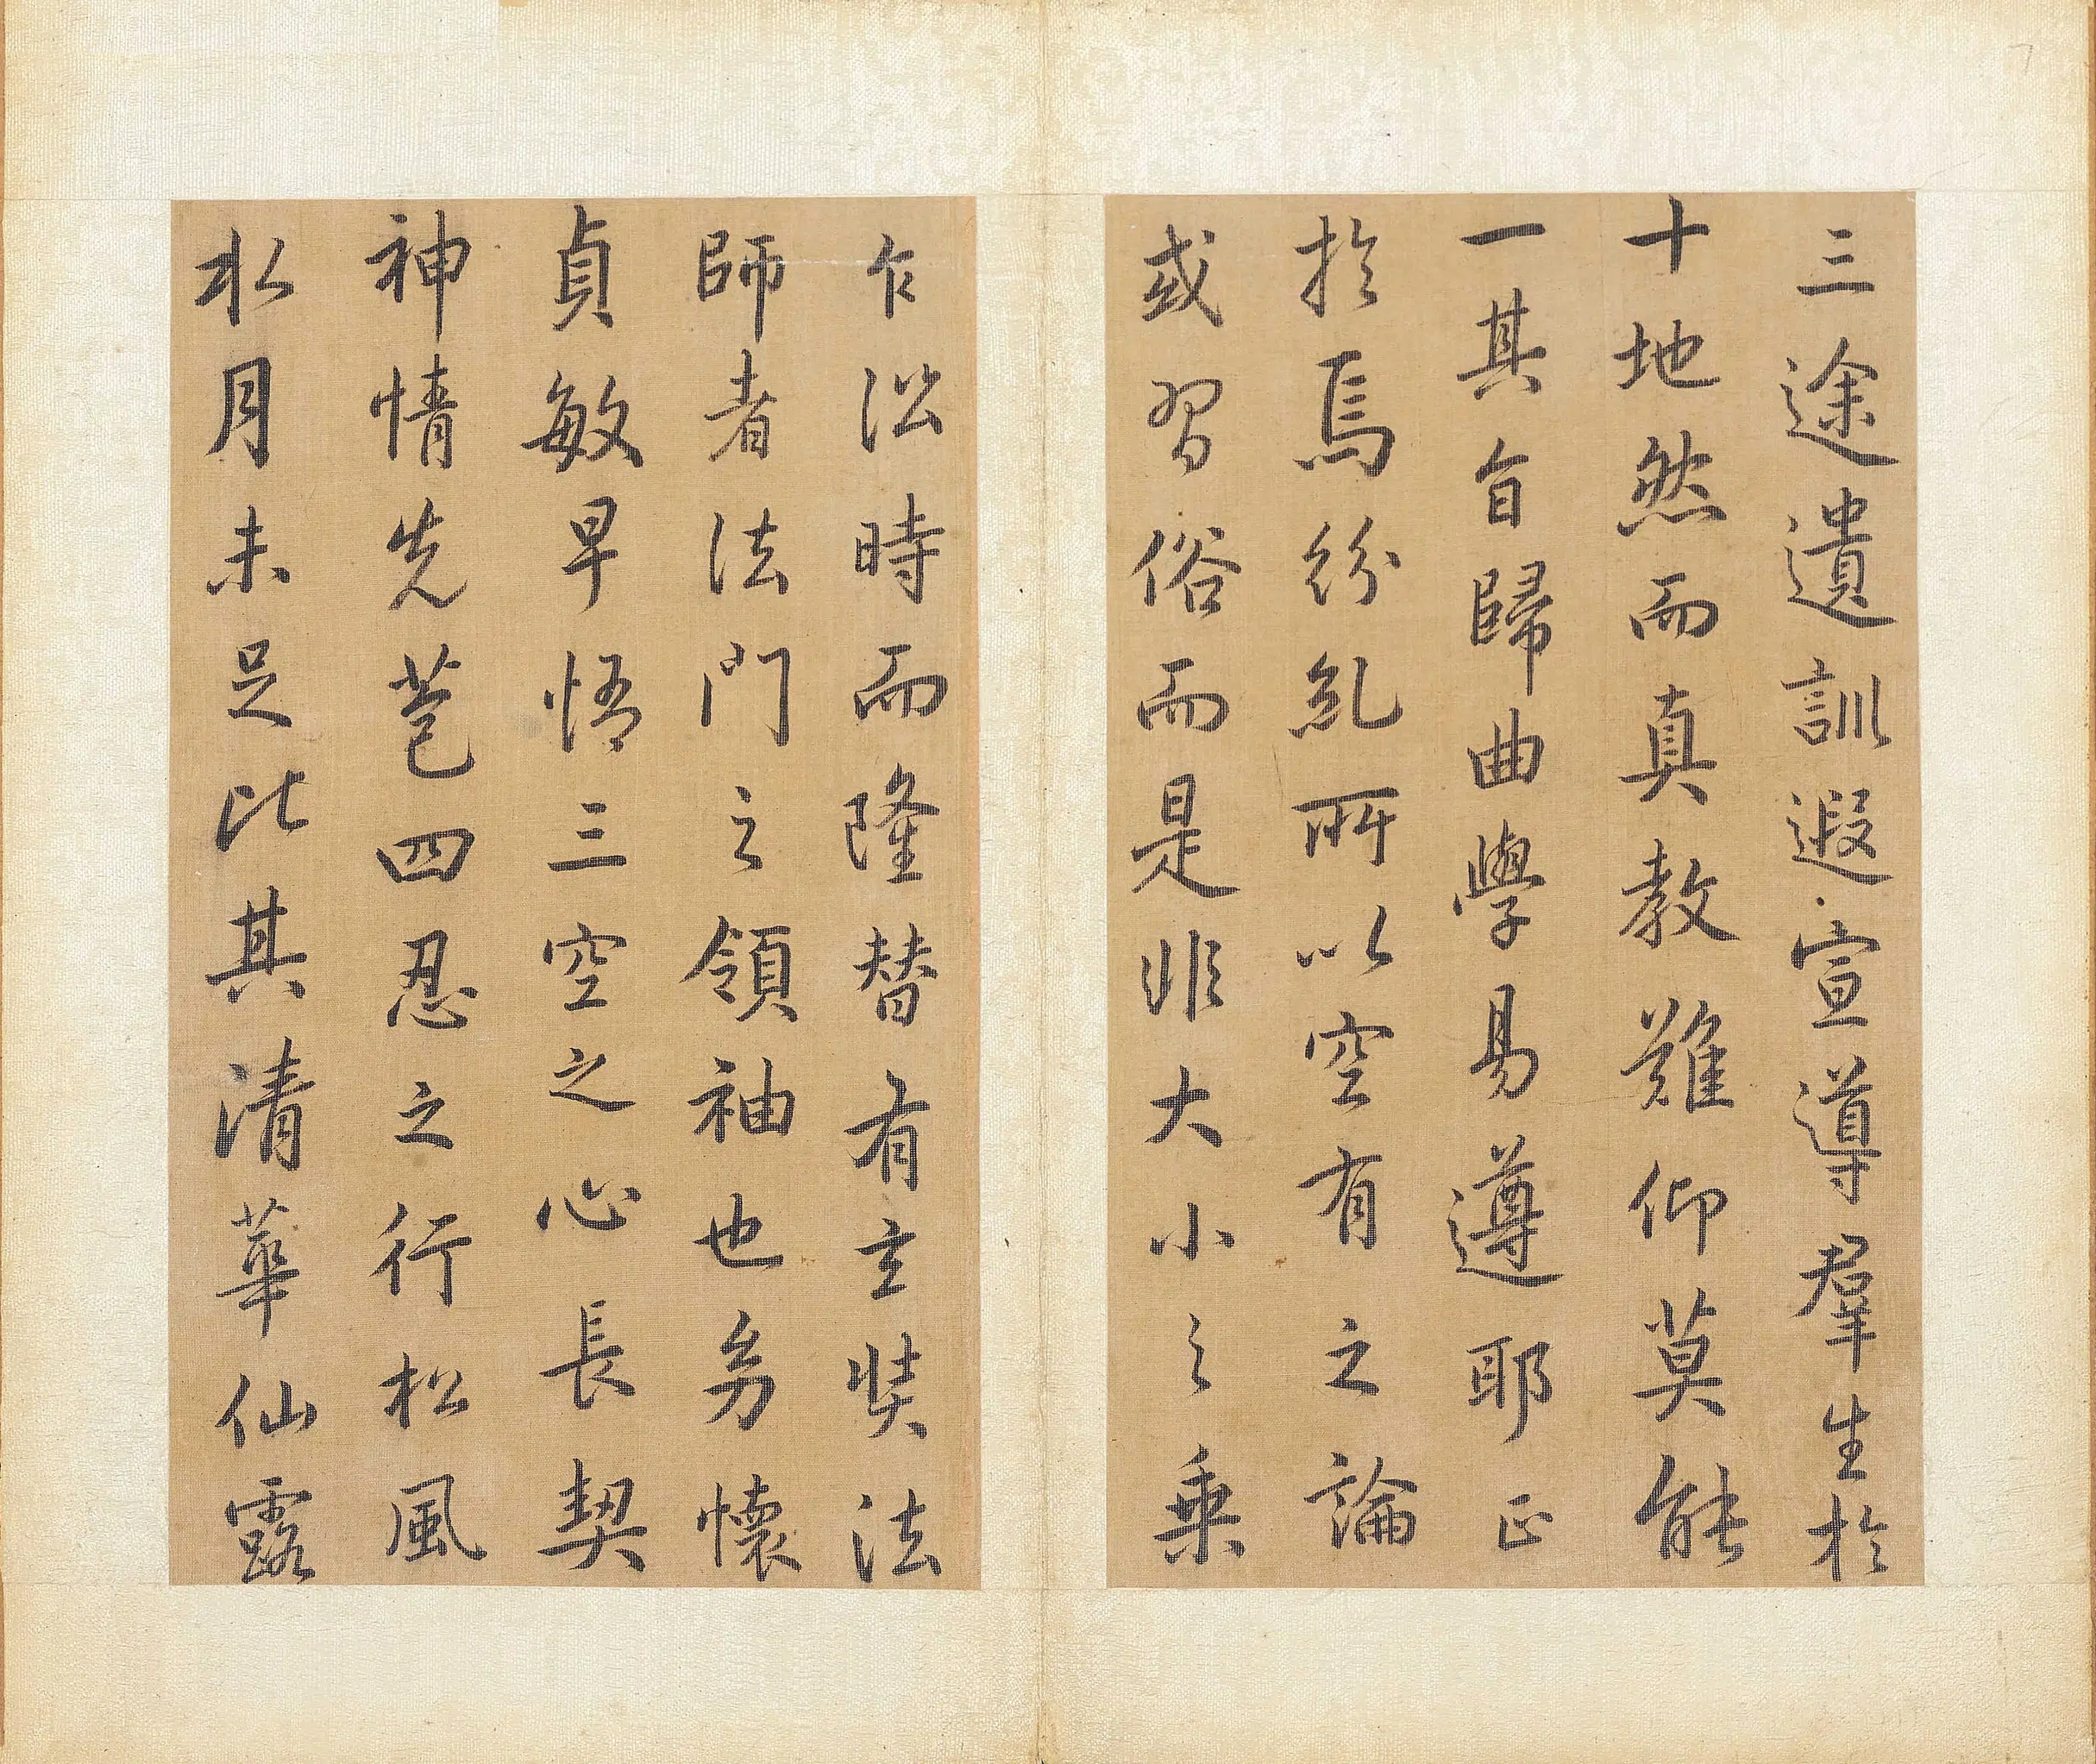 三途遺訓遐宣導羣生於
十地然而真教難仰莫能
一其旨歸曲學易遵耶正
於焉紛糺所以空有之論
或習俗而是非大小之乘
乍沿時而隆替有玄奘法
師者法門之領袖也幼懷
貞敏早悟三空之心長契
神情先苞四忍之行松風
水月未足比其清華仙露